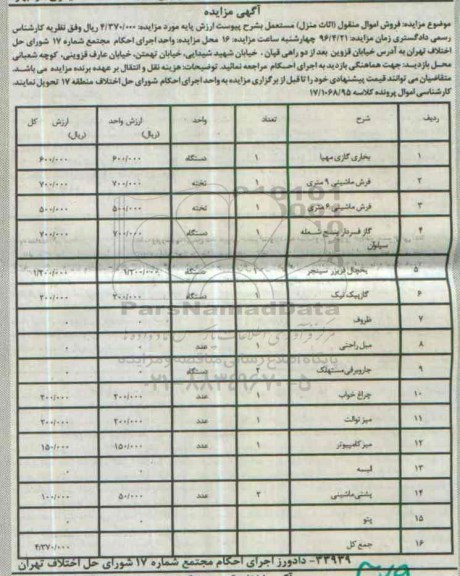 آگهی مزایده
موضوع مزایده: فروش اموال منقول (اثاث منزل) مستعمل بشرح پیوست ارزش پایه مورد مزایده: ۴/۳۷۰/۰۰۰ ریال وفق نظریه کارشناس
رسمی دادگستری زمان مزایده: ۹۶/۴/۲۱ چهارشنبه ساعت مزایده: ۱۶ محل مزایده: واحد اجرای احکام مجتمع شماره ۱۷ شورای حل
اختلاف تهران به آدرس خیابان قزوین بعد از دو راهی قپان، خیابان شهید شیدایی، خیابان تهمتن، خیابان عارف قزوینی، کوچه شعبانی
محل بازدید: جهت هماهنگی بازدید به اجرای احکام مراجعه نمائید. توضیحات: هزینه نقل و انتقال بر عهده برنده مزایده می باشد.
متقاضیان می توانند قیمت پیشنهادی خود را تا قبل از برگزاری مزایده به واحد اجرای احکام شورای حل اختلاف منطقه ۱۷ تحویل نمایند.
کارشناسی اموال پرونده کلاسه ۱۷/۱۰۶۸/۹۵
ردیف شرح تعداد واحد ارزش واحد (ریال) ارزش کل (ریال)
۱ بخاری گازی مهیا ۱ دستگاه ۶۰۰/۰۰۰ ۶۰۰/۰۰۰
۲ فرش ماشینی ۹ متری ۱ تخته ۷۰۰/۰۰۰ ۷۰۰/۰۰۰
۳ فرش ماشینی ۶ متری ۱ تخته ۵۰۰/۰۰۰ ۵۰۰/۰۰۰
۴ گاز فردار پنج شعله ۱ دستگاه ۷۰۰/۰۰۰ ۷۰۰/۰۰۰
۵ یخچال فریزر سینجر ۱ دستگاه ۱/۲۰۰/۰۰۰ ۱/۲۰۰/۰۰۰
۶ گازپیک نیک ۱ دستگاه ۲۰۰/۰۰۰ ۲۰۰/۰۰۰
۷ ظروف ۰ ۰
۸ مبل راحتی ۱ عدد ۰ ۰
۹ جاروبرقی مستهلک دستگاه ۰ ۰
۱۰ چراغ خواب ۱ عدد ۲۰۰/۰۰۰ ۲۰۰/۰۰۰
۱۱ میز توالت ۱ عدد ۲۰۰/۰۰۰ ۲۰۰/۰۰۰
۱۲ میز کامپیوتر ۱ عدد ۱۵۰/۰۰۰ ۱۵۰/۰۰۰
۱۳ البسه ۰ ۰
۱۴ پشتی ماشینی ۲ عدد ۵۰/۰۰۰ ۱۰۰/۰۰۰
۱۵ پتو ۰ ۰
۱۶ جمع کل ۴/۳۷۰/۰۰۰
۳۳۹۳۹- دادورز اجرای احکام مجتمع شماره ۱۷ شورای حل اختلاف تهران
ParsNamadData
پایگاه اطلاع رسانی مناقصه و مزایده
۰۲۱-۸۸۳۴۹۶۷۰-۵